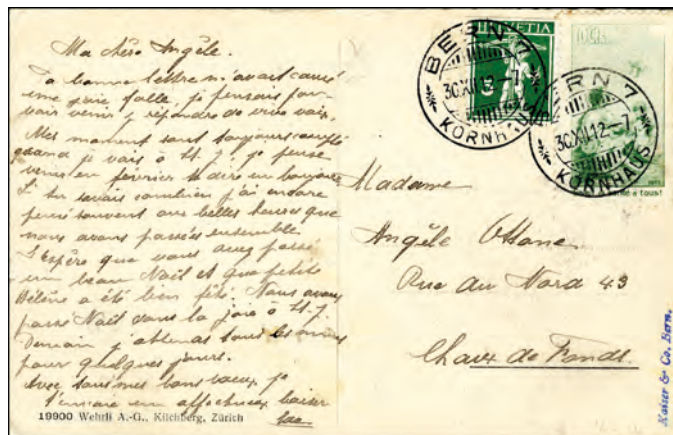 Ma chère Angèle.
Ta bonne lettre m'avait causé
une joie folle, je pensais pou-
voir venir y répondre de vive voix,
Mes moment sont toujours
quand je vais à St. J. je pense
venir en février te dire un bonjour
Si tu savais combien j'ai encore
pensé souvent aux belles heures que
nous avons passées ensemble
J'Espère que vous avez passé
un beau Noël et que petite
Hélène a été bien fêté. Nous avons
passé Noël dans la joie à St. J.
Demain j'attends tous les
pour quelques jours.
Avec tous mes bons vœux je
t'envoie un affectueux baiser
19900 Wehrli A.-G., Kilchberg, Zürich
HELVETIA
5
BERN 7
30.XII.12-7
KORNHAUS
BERN 7
30.XII.12-7
KORNHAUS
à tous!
Madame
Angèle Ottone
Rue du Nord 43
Chaux de Fonds.
Kaiser & Co. Bern.